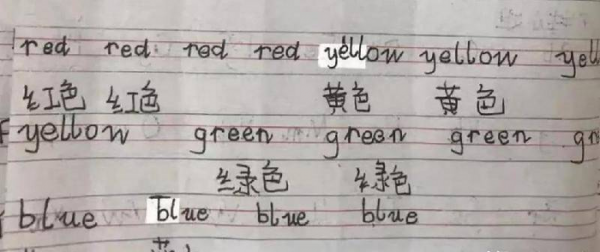 red red red red yellow yellow yell
红色 红色 黄色 黄色
yellow green green green gr
绿色 绿色
blue blue blue blue